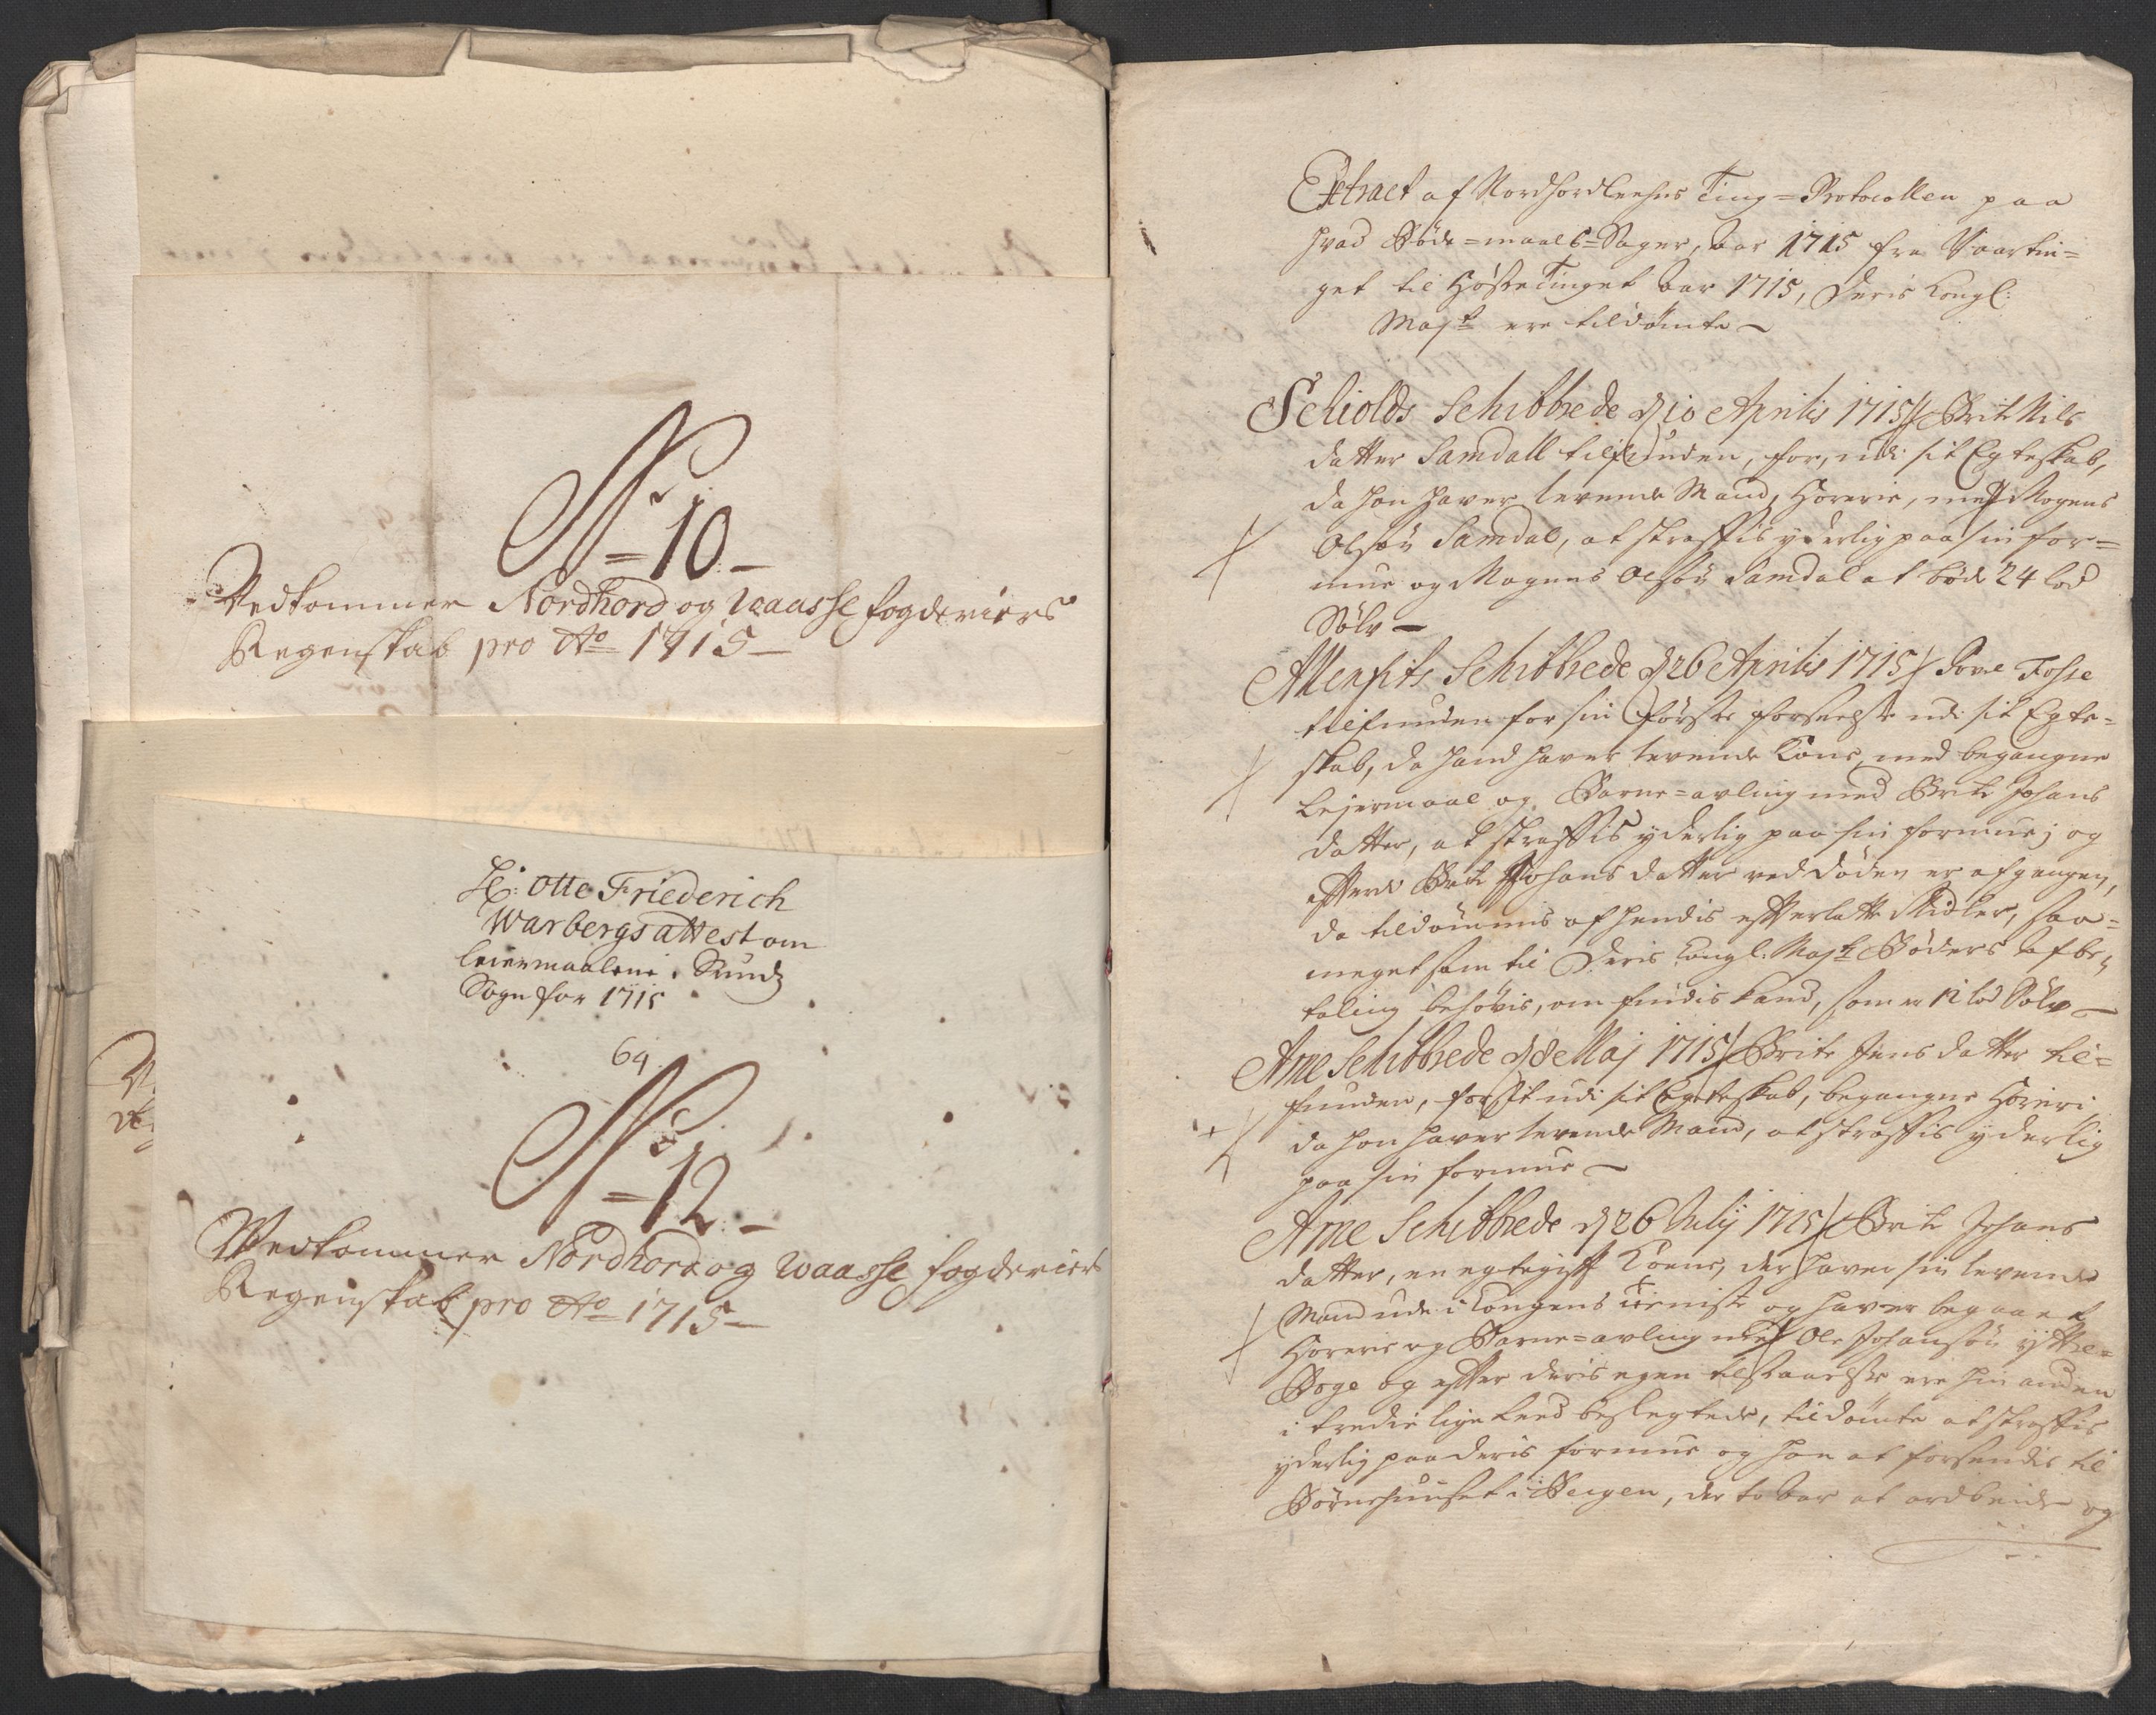 No 10
Vedkommer Nordhord og Waasse fogderiers
Regenskab pro Ao 1715
Hr: Otte Friederich
Warbergs attest om
leiermaalene i Sund
Sogn for 1715
64
No 12
Vedkommer Nordhord og Waasse fogderiers
Regenskab pro Ao 1715
Extract af Nordhordlehns Ting=Protocollen paa
hvad Bøde=maals=Sager, Aar 1715 fra Vaartin=
get til HøsteTinget Aar 1715, Deris Kongl:
Mayt ere tildømte
Schiolds Schibbrede d 10 Aprilis 1715 / Brite Nils
datter Samdall tilfunden, for, udi sit Egteskab,
da hon haver levende Mand, Horerie, med Mogens
Olsøn Samdal, at straffis yderlig paa sin for=
mue og Mogens Olsøn Samdal at bøde 24 lod
Sølv
Allenfits Schibbrede d 26 Aprilis 1715 / Fosse
tilfunden for sin første forseelse udi sit Egte=
skab, da hand haver levende Kone, med begangne
Lejermaal og Barne=avling med Brite Johans
datter, at straffis yderlig paa sin formue; og
efterdi Brite Johans datter ved døden er afgangen,
da tildømmis af hendis efterlatte Midler, saa=
meget som til Deris Kongl: Mayt Bøders afbe=
taling behøvis, om findis kand, som er 12 lod Sølv
Arne Schibbrede d 8 Maj 1715 / Brite Jens datter til=
funden, for sit udi sit Egteskab, begangne Horeri,
da hon haver levende Mand, at straffis yderlig
paa sin formue
Arne Schibbrede d 26 Julij 1715 / Brite Johans
datter, en egtegift Kone, der haver sin levende
Mand ude i Kongens tieniste og haver begaaet
Horerie og Barne=avling med Ole Johansøn yttre=
Boge og efter deris egen tilstaaelse ere hin anden
i tredie lige Leed beslegtede, tildømte at straffis
yderlig paa deris formue og hon at forsendis til
Børnehuuset i Bergen, der to Aar at arbeide og